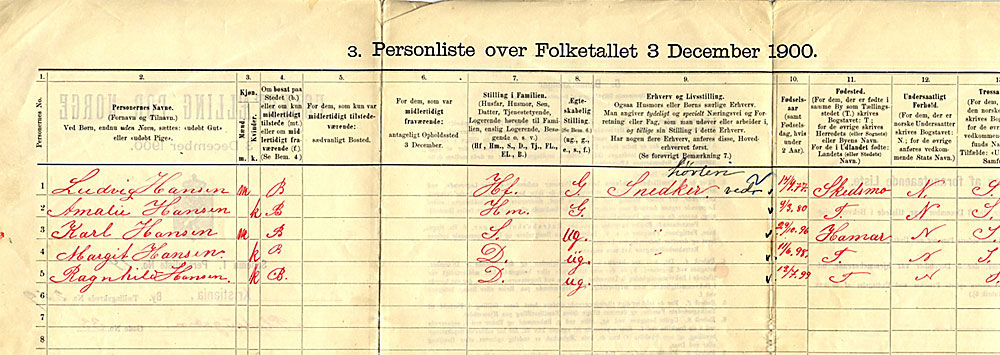 3. Personliste over Folketallet 3 December 1900.
1.
2.
3.
4.
5.
6.
7.
8.
9.
10.
11.
12.
13.
Personernes No.
Personernes Navne.
(Fornavn og Tilnavn.)
Ved Børn, endnu uden Navn, sættes: «udøbt Gut»
eller «udøbt Pige».
Kjøn.
Mænd.
Kvinder.
m.
k.
Om bosat paa
Stedet (b.)
eller om kun
midlertidigt
tilstede (mt.)
eller om midlertidigt
fraværende (f.)
(Se Bem. 4.)
For dem, som kun var
midlertidigt tilstedeværende:
sædvanligt Bosted.
For dem, som var
midlertidigt
fraværende:
antageligt Opholdssted
3 December.
Stilling i Familien.
(Husfar, Husmor, Søn,
Datter, Tjenestetyende,
Logerende hørende til Familien,
enslig Logerende, Besøgende
o. s. v.)
(Hf, Hm., S., D., Tj., FL.,
EL., B.)
Ægteskabelig
Stilling.
(Se Bem. 6.)
(ug., g.,
e., s., f.)
Erhverv og Livsstilling.
Ogsaa Husmors eller Børns særlige Erhverv.
Man angiver tydeligt og specielt Næringsvei og Forretning
eller Fag, som man udøver eller arbeider i,
og tillige sin Stilling i dette Erhverv.
Har nogen flere Erhverv, anføres disse, Hovederhvervet
først.
(Se forøvrigt Bemærkning 7.)
Fødselsaar
samt
Fødselsdag,
hvis
under
2 Aar.
Fødested.
(For dem, der er fødte i
samme By som Tællingsstedet
(T.) skrives
Bogstavet: T.;
for de øvrige skrives
Herredets (eller Sognets)
eller Byens Navn.
For de i Udlandet fødte:
Landets (eller Stedets)
Navn.)
Undersaatligt
Forhold.
(For dem, der er
norske Undersaatter
skrives Bogstavet:
N.; for de øvrige
anføres vedkommende
Stats Navn.)
1 Ludvig Hansen m B Hf. G. Snedker hövlen ved 77 Skedsmo N S.
2 Amalie Hansen k B Hm. G. " 9/3.80 T. N S.
3 Karl Hansen m B S. ug. " 29/10.96 Hamar N.
4 Margit Hansen. k B D. ug. " 11/6.98. T. N
5 Ragnhild Hansen. k B. D. ug. 12/7.99 T N
6
7
8